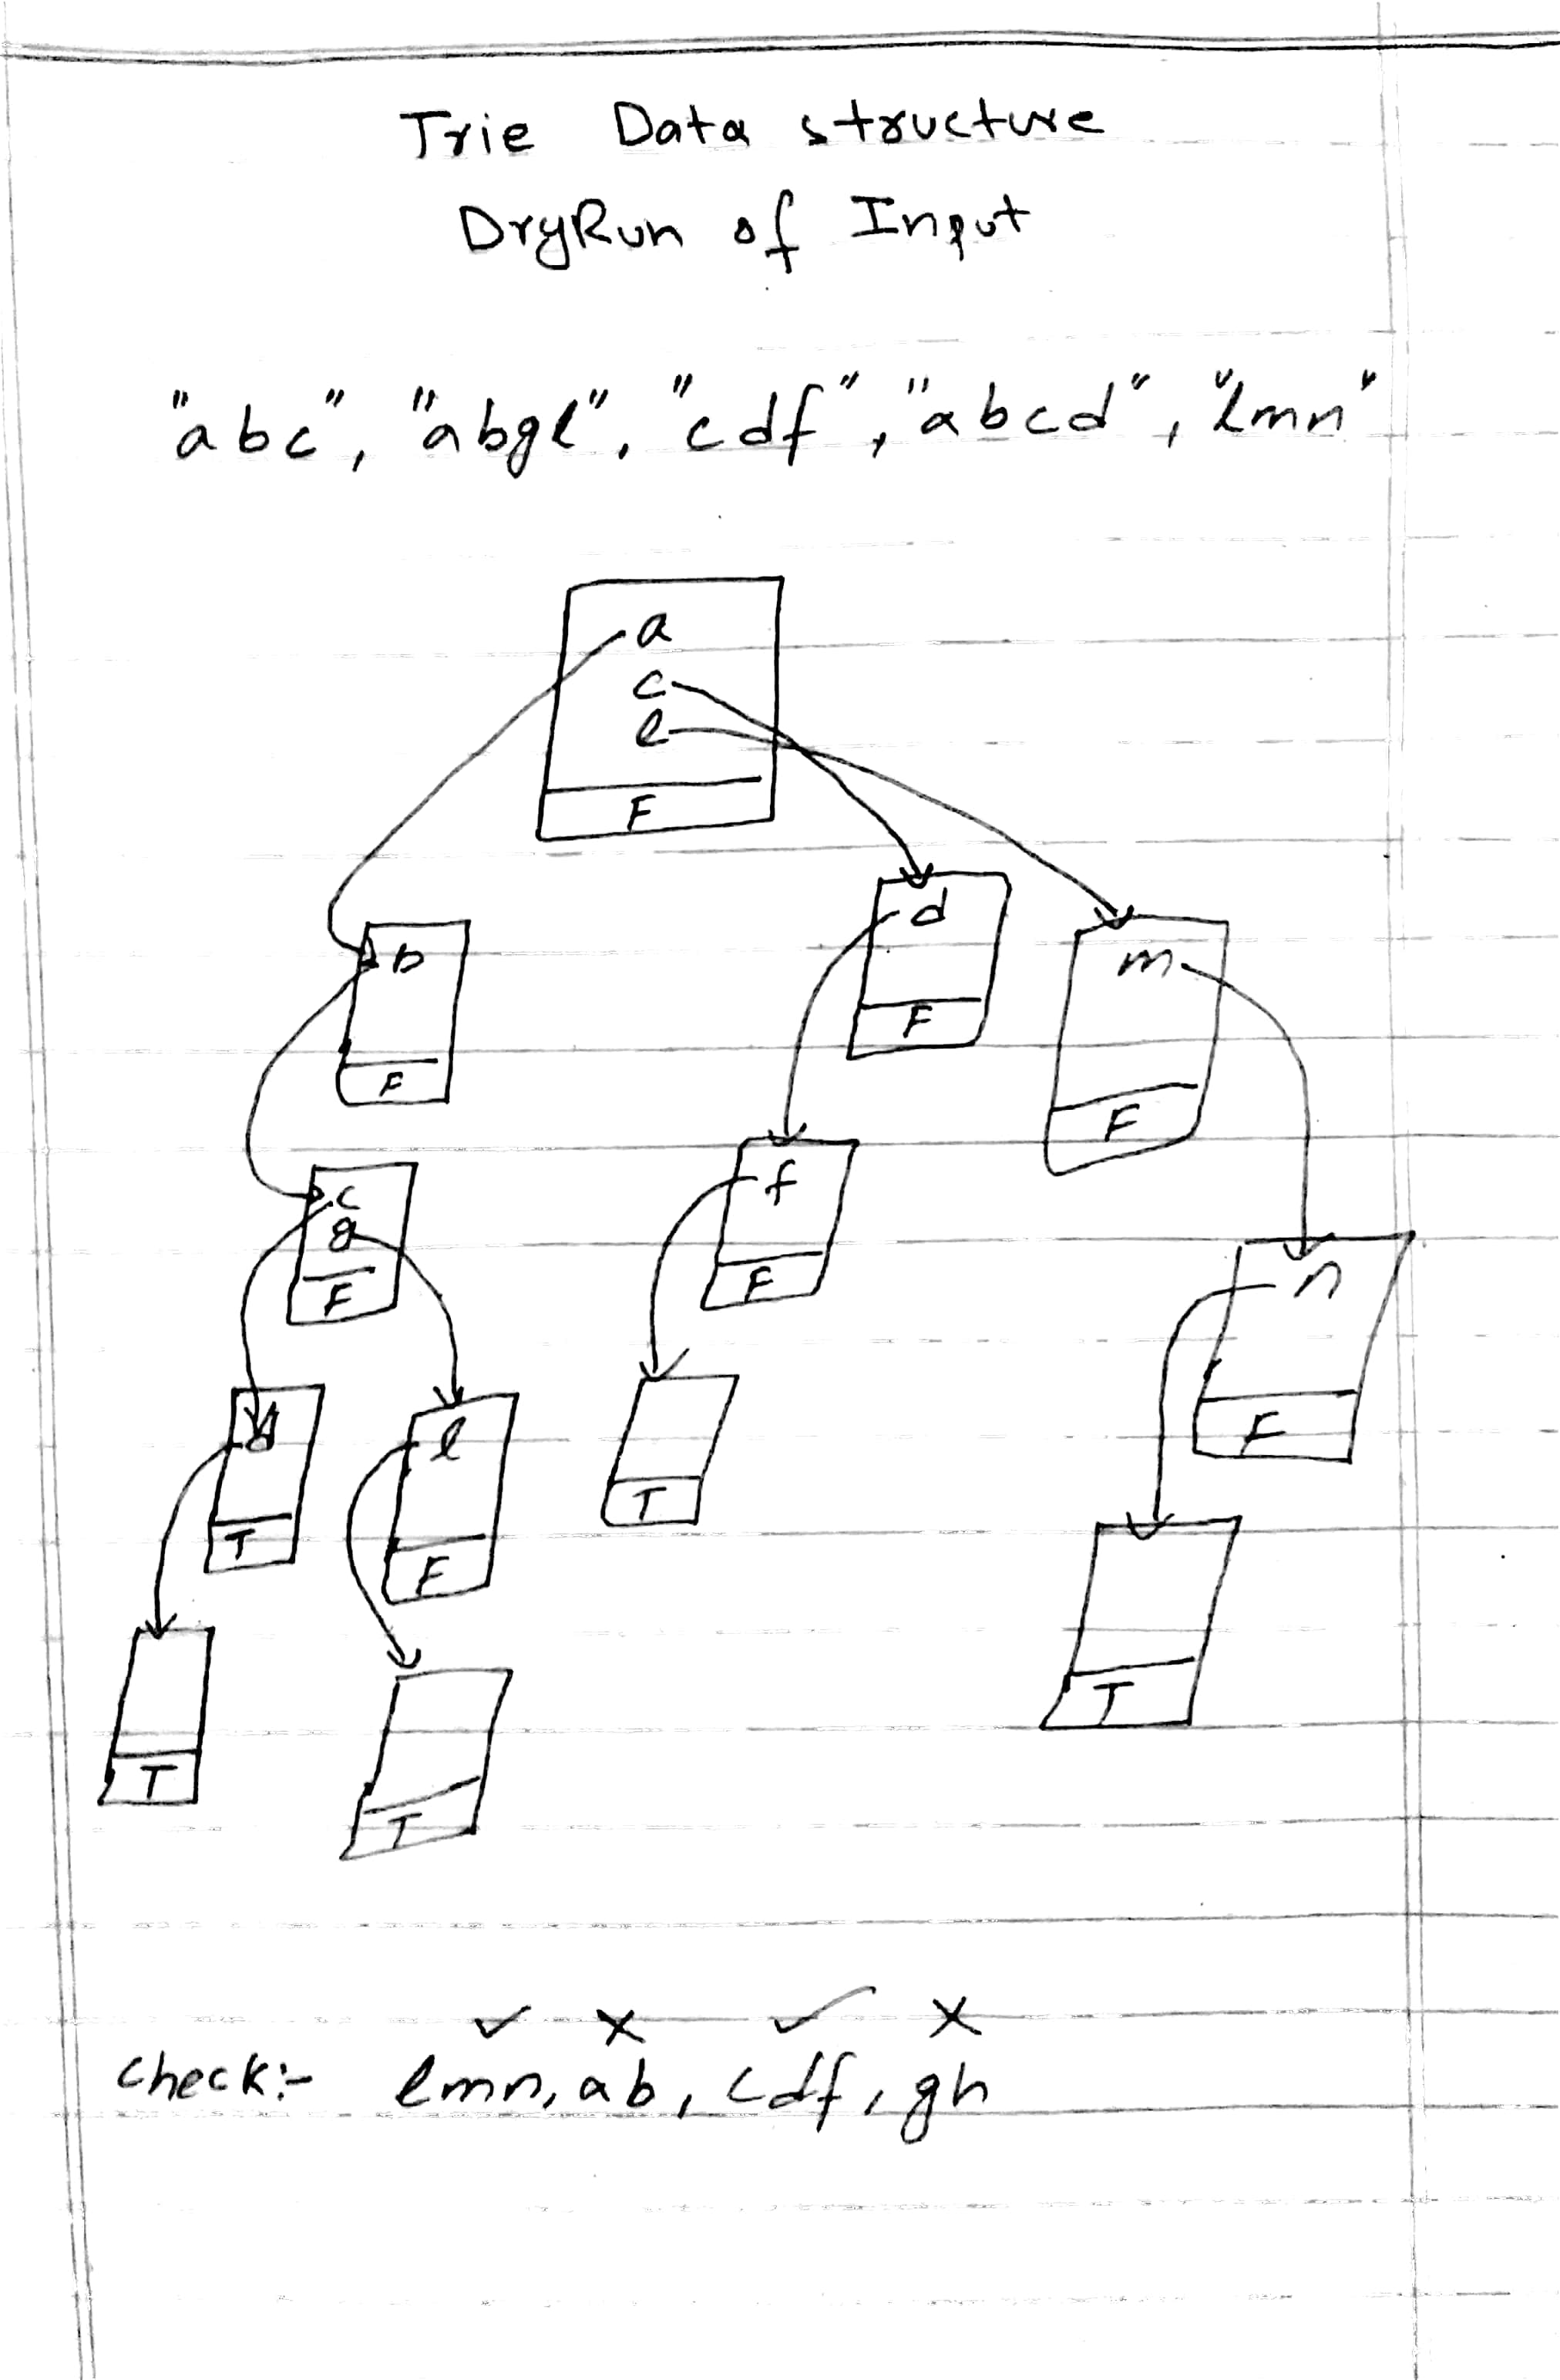 Trie Data structure
DryRun of Input
"abc", "abgl", "cdf", "abcd", "lmn"
a
c
l
F
d
F
b
F
m
F
c
g
F
f
F
n
F
d
T
l
F
T
T
T
T
✓ × ✓ ×
check:- lmn, ab, cdf, gh